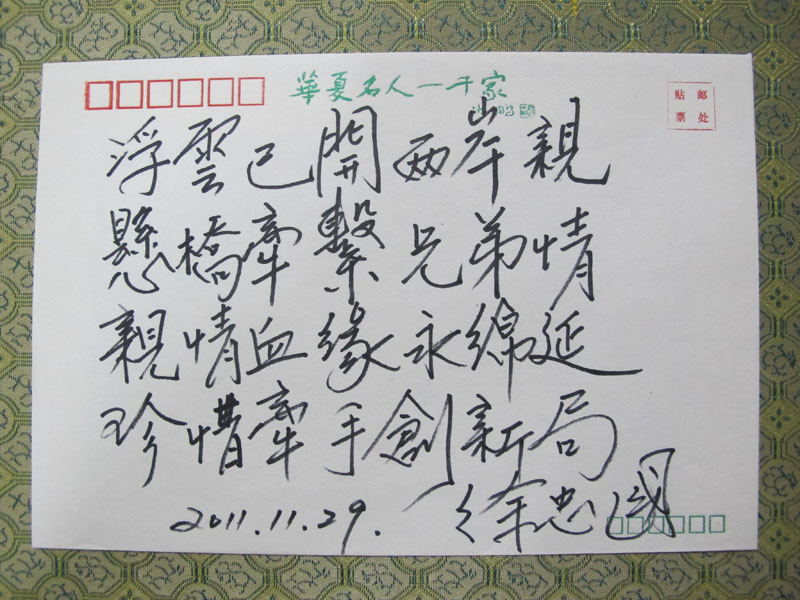 華夏名人一千家
贴 邮
票 处
浮雲已開兩岸親
懸橋牽繫兄弟情
親情血緣永綿延
珍惜牽手創新局
2011.11.29. 徐忠國